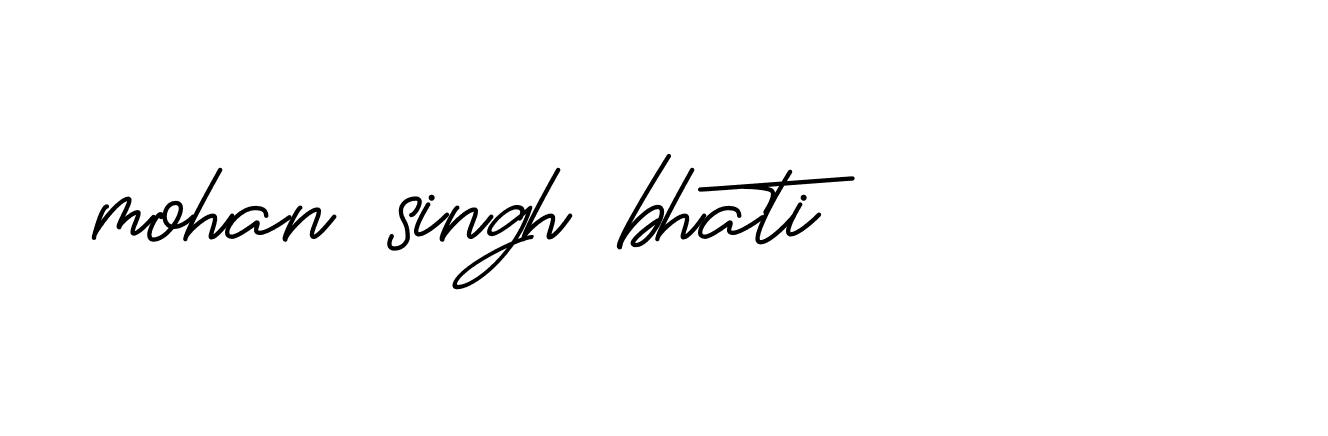 mohan singh bhati